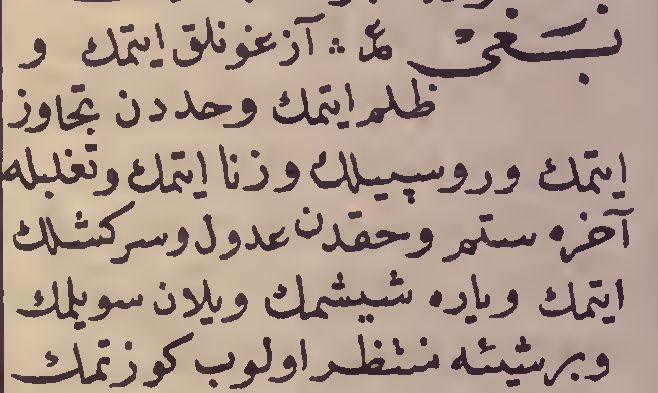 بَغى ع : آزغونلق ايتمك و
ظلم ايتمك وحددن تجاوز
ايتمك وروسپيلك وزنا ايتمك وتغلبله
آخره ستم وحقدن عدول وسركشلك
ايتمك وياره شيشمك ويلان سويلمك
وبرشيئه منتظر اولوب كوزتمك